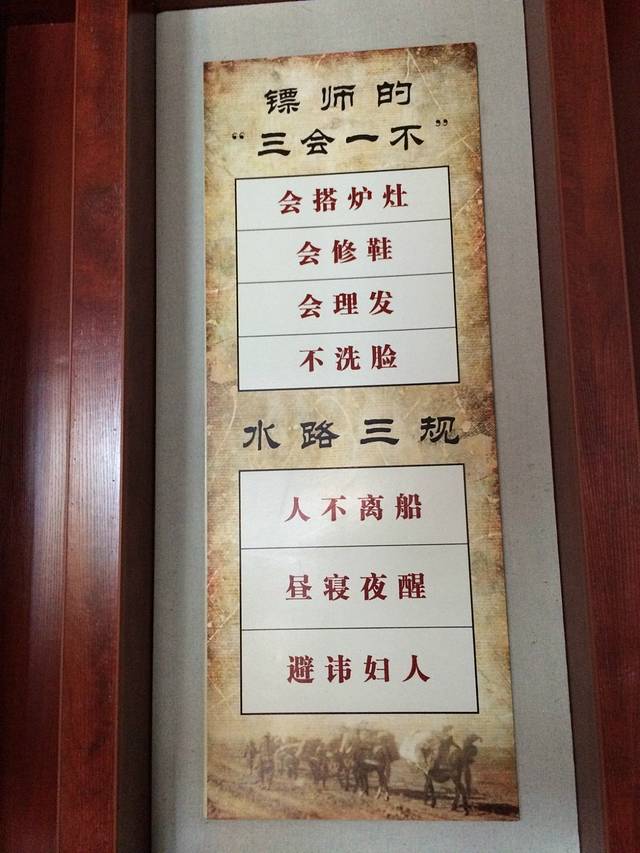 镖师的
“三会一不”
会搭炉灶
会修鞋
会理发
不洗脸
水路三规
人不离船
昼寝夜醒
避讳妇人